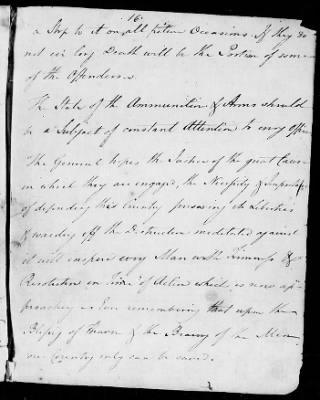 16
a Stop to it on all future Occasions. If they do
not ere long Death will be the Portion of some
of the Offenders.
The State of the Ammunition & Arms should
be a Subject of constant Attention to every Officer
The General hopes the Justice of the great Cause
in which they are engaged, the Necessity & Importance
of defending this Country preserving its Liberties
& warding off the Destruction meditated against
it will inspire every Man with Firmness &
Resolution in Time of Action which is now ap-
proaching Ever remembering that upon the
Blessing of Heaven & the Bravery of the Men
our Country only can be saved.